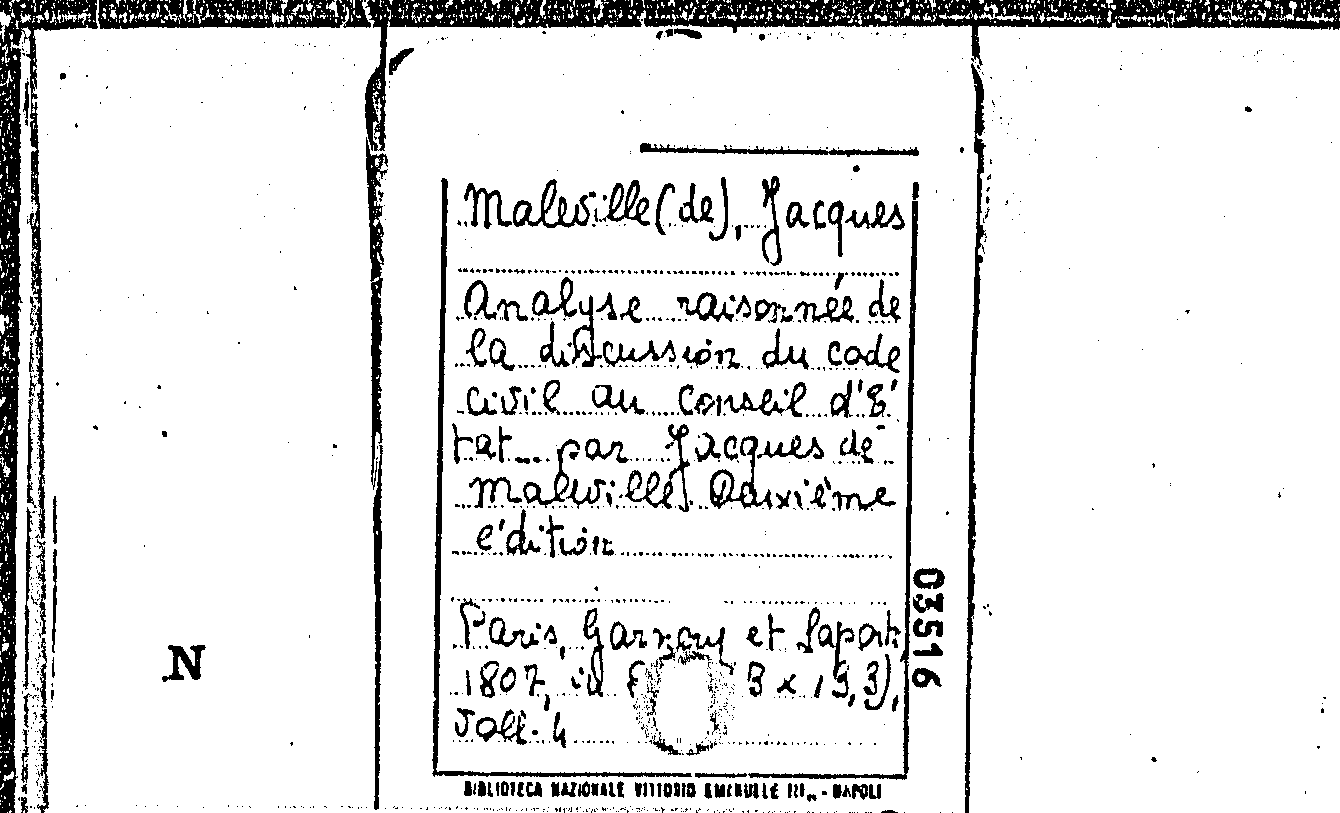 Maleville (de), Jacques
Analyse raisonnée de
la discussion du code
civil au conseil d'É
tat... par Jacques de
Maleville. Deuxième
édition
Paris, Garnery et Laporte,
1807, in 8 3 x 13,3),
voll. 4
03516
N
BIBLIOTECA NAZIONALE VITTORIO EMANUELE III„ - NAPOLI